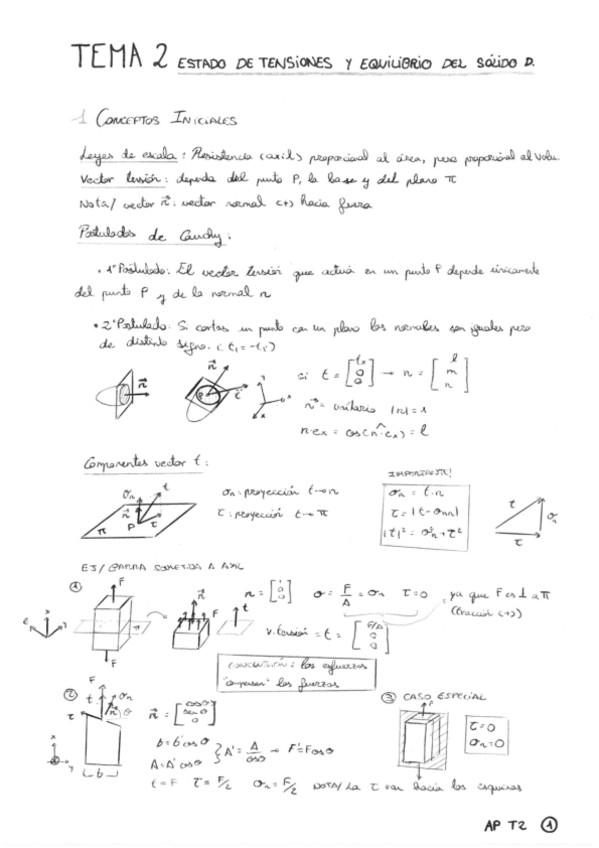 TEMA 2 ESTADO DE TENSIONES Y EQUILIBRIO DEL SÓLIDO D.
1 CONCEPTOS INICIALES
Leyes de escala: Resistencia (axil) proporcional al área, peso proporcional al volu.
Vector tensión: depende del punto P, la base y del plano π
Nota/ vector n⃗: vector normal (+) hacia fuera
Postulados de Cauchy:
• 1º Postulado: El vector tensión que actúa en un punto P depende únicamente
del punto P y de la normal n
• 2º Postulado: Si cortas un punto con un plano las normales son iguales pero
de distinto signo. (t₁ = -t₁)
n⃗
n⃗
P
t
si t = [tₓ 0 0] → n = [l m n]
n⃗ = unitario |n| = 1
n·eₓ = cos(n^eₓ) = l
Componentes vector t:
IMPORTANTE!
σn t
n⃗
P τ
π
σn: proyección t→n
τ: proyección t→π
σn = t·n
τ = |t - σn n|
|t|² = σ²n + τ²
t σn
τ
EJ/ BARRA SOMETIDA A AXIL
① F
F
n⃗
t
n = [1 0 0] σ = F/A = σn τ = 0
ya que F es ⊥ a π
(tracción (+))
v. tensión = t = [F/A 0 0]
CONCLUSIÓN: los esfuerzos
"compensan" las fuerzas
② F
t σn
τ n⃗ θ
b
n⃗ = [cosθ senθ 0]
b = b'cosθ
A = A'cosθ
} A' = A/cosθ → F' = Fcosθ
t = F τ = F/2 σn = F/2 NOTA/ La τ van hacia las esquinas
③ CASO ESPECIAL
F
τ = 0
σn = 0
AP T2 ①